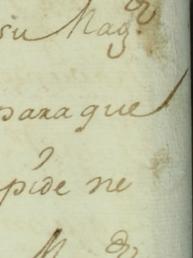 su Mag.d
para que
pide ne